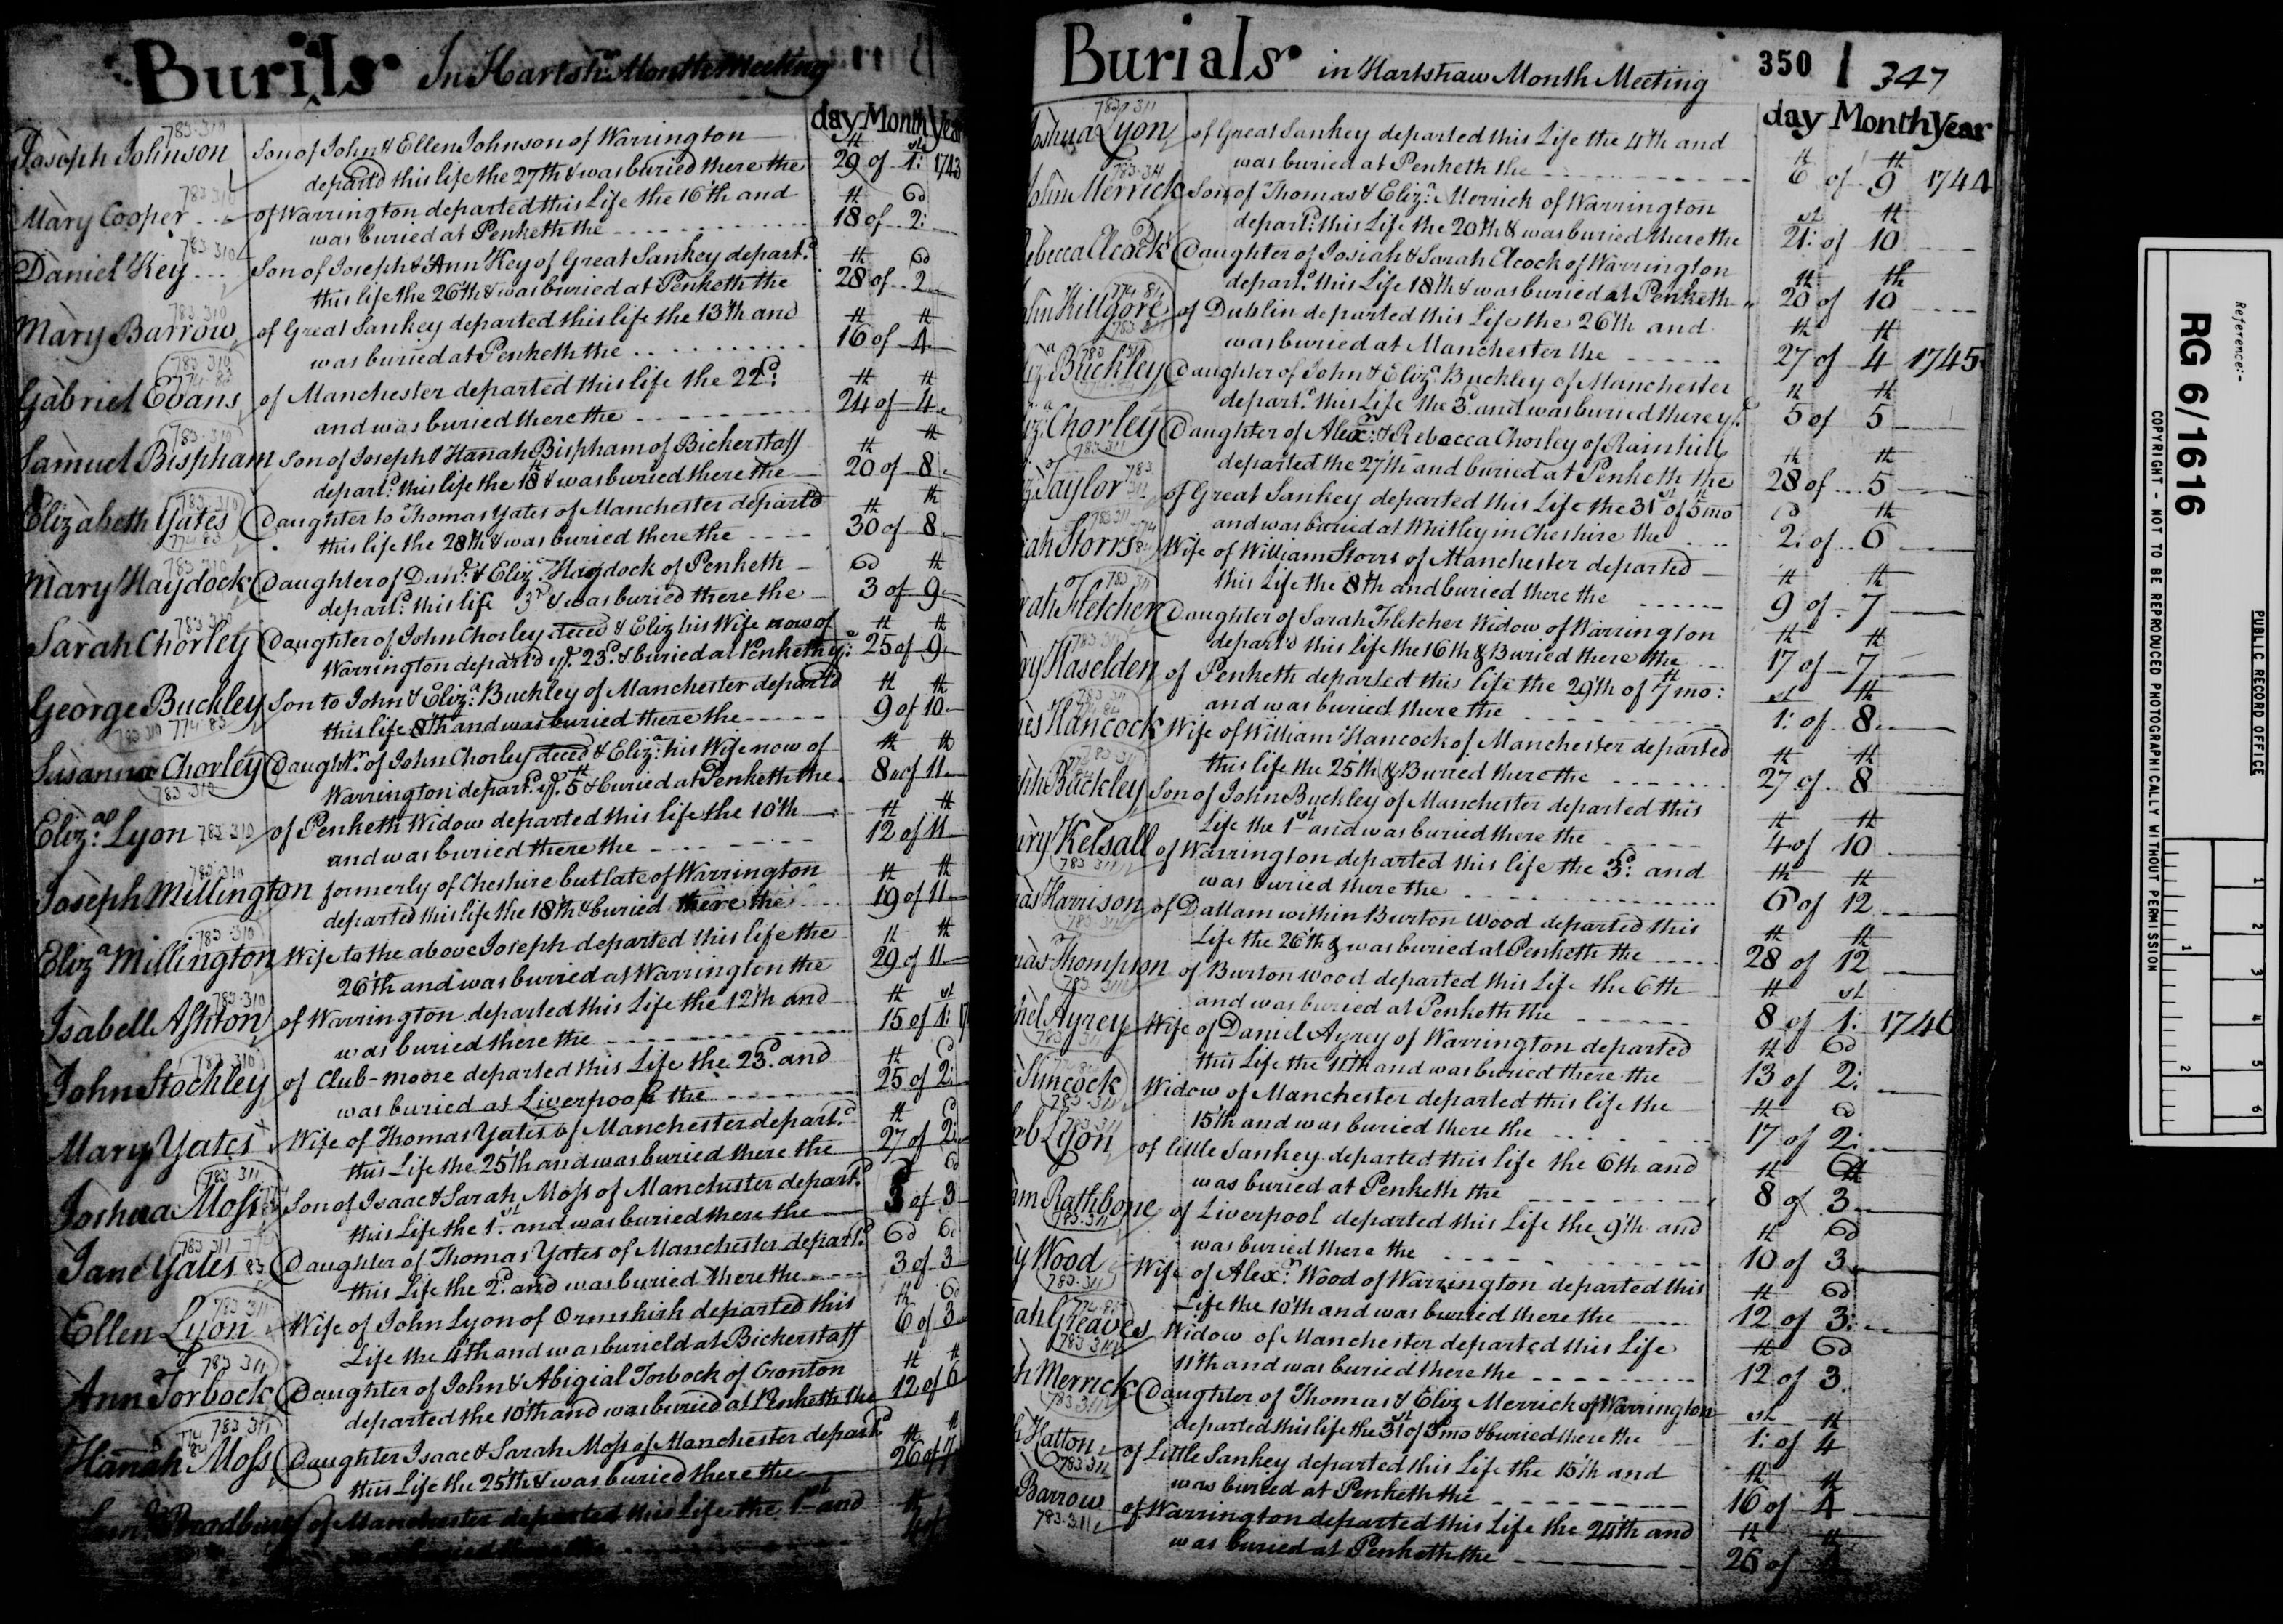 Burials In Hartsh.ᵃ Month Meeting
day Month Year
783-310
Joseph Johnson Son of John & Ellen Johnson of Warrington
depart'd this life the 27th & was buried there the 29th of 1st: 1743
783 310
Mary Cooper of Warrington departed this Life the 16th and
was buried at Penketh the 18th of 2d:
783 310
Daniel Key Son of Joseph & Ann Key of Great Sankey depart.d
this life the 26th & was buried at Penketh the 28th of 2d
783 310
Mary Barrow of Great Sankey departed this life the 13th and
was buried at Penketh the 16th of 4th
783 310
774 83
Gabriel Evans of Manchester departed this life the 22d:
and was buried there the 24th of 4th
783-310
Samuel Bispham Son of Joseph & Hanah Bispham of Bickerstaff
depart.d this life the 18th & was buried there the 20th of 8th
783-310
Elizabeth Yates Daughter to Thomas Yates of Manchester depart'd
774 83
this life the 28th & was buried there the 30th of 8th
783 310
Mary Haydock Daughter of Dan.l & Eliz.a Haydock of Penketh
depart.d this life 3rd & was buried there the 3d of 9th
783 310
Sarah Chorley Daughter of John Chorley dece'd & Eliz his Wife now of
Warrington depart'd ye. 23d. & buried at Penketh ye: 25th of 9th
George Buckley Son to John & Eliz.a Buckley of Manchester depart'd
783 310 774-83
this life 8th and was buried there the 9th of 10th
Susanna Chorley Daught.r of John Chorley dece'd & Eliz.a his Wife now of
783-310
Warrington depart.d ye. 5th & buried at Penketh the 8th of 11th
Eliz.ab Lyon 783 310 of Penketh Widow departed this life the 10th
and was buried there the 12th of 11th
783-310
Joseph Millington formerly of Cheshire but late of Warrington
departed this life the 18th & buried there the 19th of 11th
783-310
Eliz.a Millington Wife to the above Joseph departed this life the
26th and was buried at Warrington the 29th of 11th
783-310
Isabell Ashton of Warrington departed this Life the 12th and
was buried there the 15th of 1st: 17
783 310
John Stockley of Club-moore departed this Life the 23d. and
was buried at Liverpool the 25th of 2d:
Mary Yates Wife of Thomas Yates of Manchester depart.d
this Life the 25th and was buried there the 27th of 2d:
783 311
Joshua Moss Son of Isaac & Sarah Moss of Manchester depart.d
this Life the 1st and was buried there the 3d of 3d
783 311
Jane Yates 83 Daughter of Thomas Yates of Manchester depart.d
this Life the 2d. and was buried there the 3d of 3d
783 311
Ellen Lyon Wife of John Lyon of Ormskirk departed this
Life the 4th and was burield at Bickerstaff 6th of 3d
783 311
Ann Torbock Daughter of John & Abigial Torbock of Cronton
departed the 10th and was buried at Penketh the 12th of 6th
783 311
774 84
Hanah Moss Daughter Isaac & Sarah Moss of Manchester depart.d
this Life the 25th & was buried there the 26th of 7th
Bradbury of Manchester departed this Life the 1st and
buried there the 4th of
Burials in Hartshaw Month Meeting 350 347
day Month Year
783 311
oshua Lyon of Great Sankey departed this Life the 4th and
was buried at Penketh the 6th of 9th 1744
783-311
ohn Merrick Son of Thomas & Eliz.a Merrick of Warrington
depart.d this Life the 20th & was buried there the 21st: of 10th
ebecca Elcock Daughter of Josiah & Sarah Elcock of Warrington
depart.d this Life 18th & was buried at Penketh 20th of 10th
774 84
ohn Killgore of Dublin departed this Life the 26th and
was buried at Manchester the 27th of 4th 1745
783 311
iz.a Buckley Daughter of John & Eliz.a Buckley of Manchester
depart.d this Life the 3d. and was buried there ye. 5th of 5th
iz.a Chorley Daughter of Alex.r & Rebecca Chorley of Rainhill
783-311
departed the 27th and buried at Penketh the 28th of 5th
783 311
Taylor of Great Sankey departed this Life the 31st of 5th mo
and was buried at Whitley in Cheshire the 2d: of 6th
783 311 774 84
ah Storrs Wife of William Storrs of Manchester departed
this Life the 8th and buried there the 9th of 7th
783 311
rah Fletcher Daughter of Sarah Fletcher Widow of Warrington
depart'd this Life the 16th & Buried there the 17th of 7th
783 311
ry Haselden of Penketh departed this life the 29th of 7th mo:
and was buried there the 1st: of 8th
783 311
774 84
es Hancock Wife of William Hancock of Manchester departed
this life the 25th & Buried there the 27th of 8th
783 311
ph Buckley Son of John Buckley of Manchester departed this
Life the 1st and was buried there the 4th of 10th
ary Kelsall of Warrington departed this life the 3d: and
783 311
was buried there the 6th of 12th
as Harrison of Dallam within Burton Wood departed this
783 311
Life the 26th & was buried at Penketh the 28th of 12th
as Thompson of Burton wood departed this Life the 6th
783 311
and was buried at Penketh the 8th of 1st: 1746
hel Ayrey Wife of Daniel Ayrey of Warrington departed
783 311
this Life the 11th and was buried there the 13th of 2d:
Simcock Widow of Manchester departed this life the
783-311
15th and was buried there the 17th of 2d:
783 311
ob Lyon of little Sankey departed this life the 6th and
was buried at Penketh the 8th of 3d
am Rathbone of Liverpool departed this Life the 9th and
783-311
was buried there the 10th of 3d
y Wood Wife of Alex.r Wood of Warrington departed this
783-311
Life the 10th and was buried there the 12th of 3d:
774-84
ah Greaves Widow of Manchester departed this Life
783 311
11th and was buried there the 12th of 3d
h Merrick Daughter of Thomas & Eliz Merrick of Warrington
783 311
departed this life the 31st of 3 mo & buried there the 1st: of 4th
h Hatton of Little Sankey departed this Life the 15th and
783 311
was buried at Penketh the 16th of 4th
Barrow of Warrington departed this Life the 24th and
783-311
was buried at Penketh the 26th of 4th
Reference:-
RG 6/1616
PUBLIC RECORD OFFICE
COPYRIGHT - NOT TO BE REPRODUCED PHOTOGRAPHICALLY WITHOUT PERMISSION
1 2 3 4 5 6
1 2